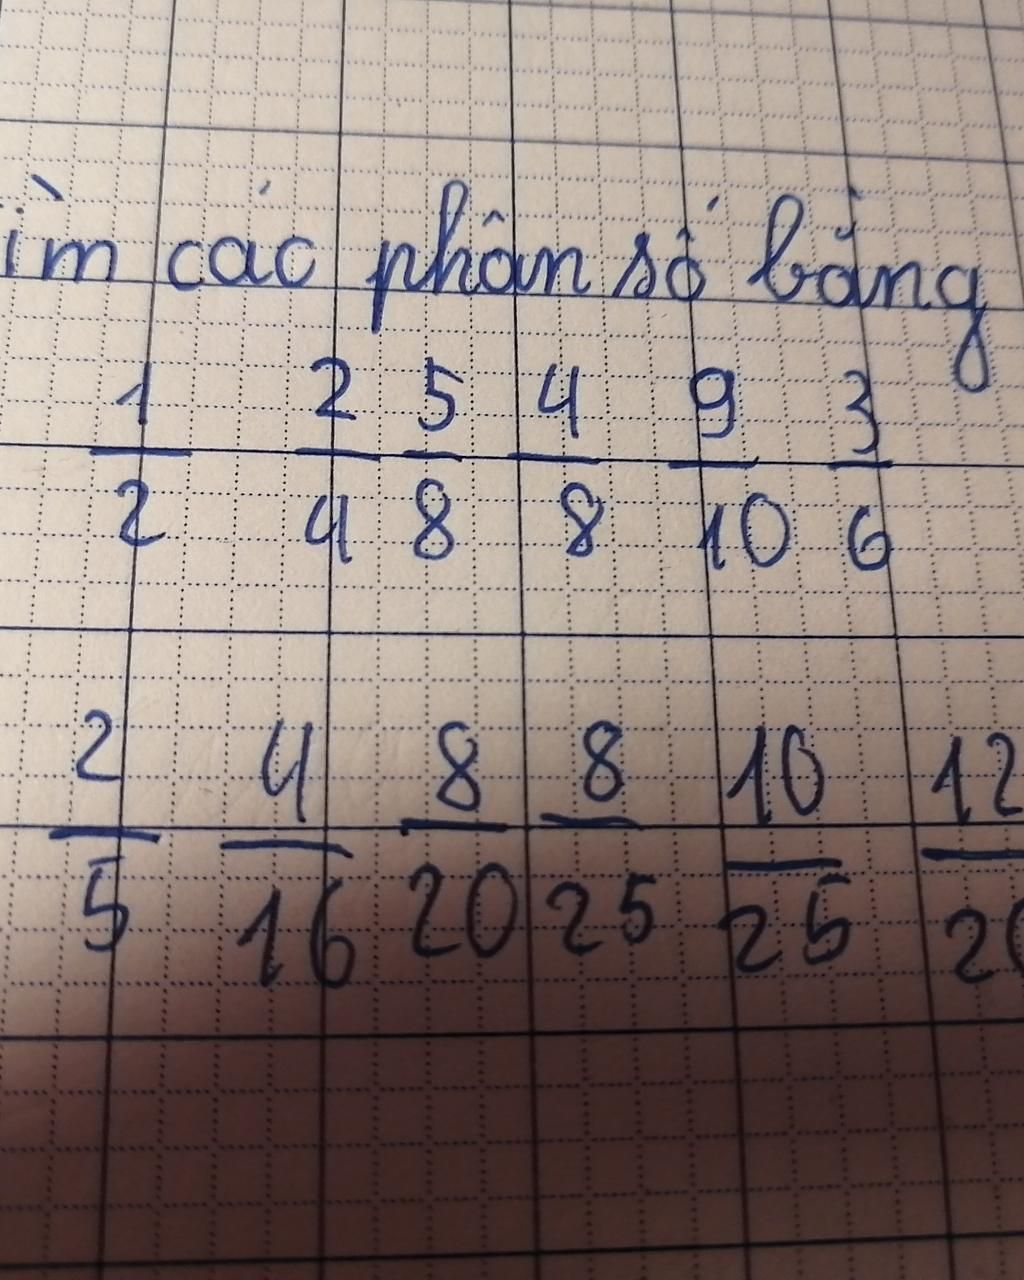 ìm các phân số bằng
1/2 2/4 5/8 4/8 9/10 3/6
2/5 4/16 8/20 8/25 10/25 12/20